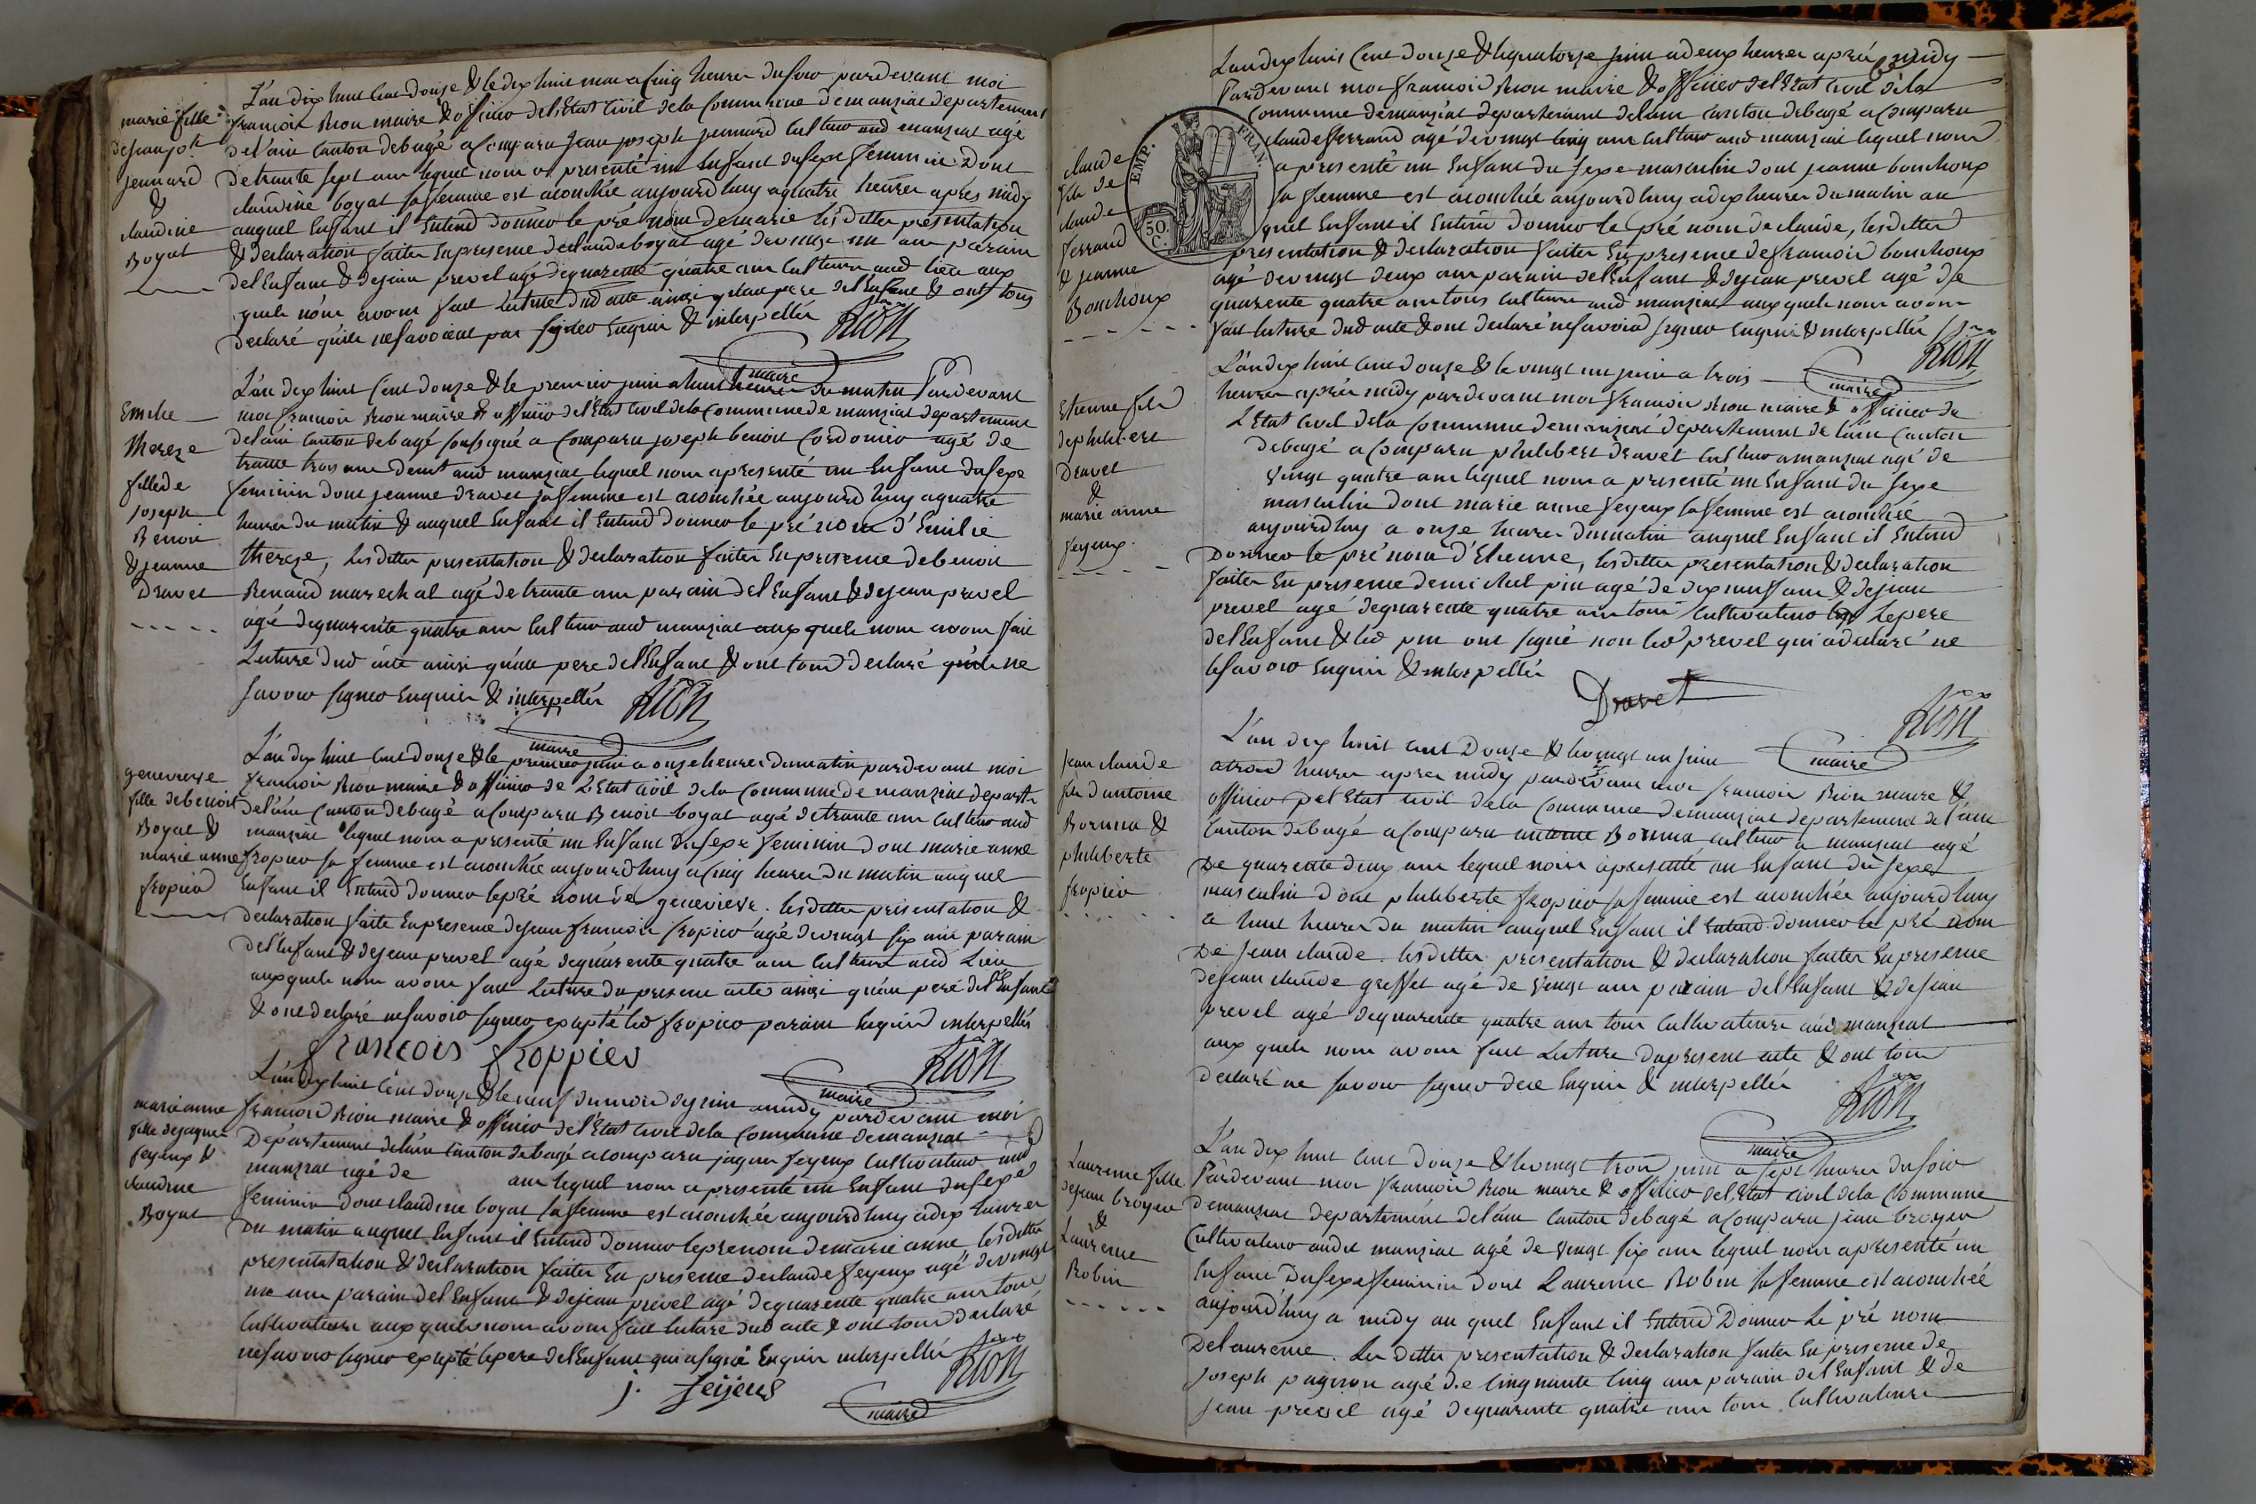 marie fille
de jean joh
jennard
&
claudine
Boyat
L'an dix huit cent douze & le dix huit mai a cinq heures du soir pardevant moi
francois Rion maire & officier de l'Etat Civil de la Commune de manziat departement
de l'ain Canton de bagé a Comparu jean joseph jennard Cultiur aud manziat agé
de trante sept ans lequel nous a presenté un Enfant du sexe feminin Dont
claudine boyat sa femme est acouchée aujourd'huy a quatre heures après midy
auquel Enfant il Entend donner le pré nom de marie les dittes présentation
& declaration faites En presense de claude boyat agé de vingt un ans parain
de l'Enfant & de jean prevel agé de quarente quatre ans Cultiurs aud lieu aux
quels nous avons fait lecture dud acte ainsi qu'au pere de l'Enfant & ont tous
declaré qu'ils ne savoient pas signer Enquis & interpellés
Rion
maire
Emilie
thereze
fille de
joseph
Benoit
& jeanne
Dravet
L'an dix huit Cent douze & le premier juin a huit heures du matin Pardevant
moi francois Rion maire & officier de l'Etat Civil de la Commune de manziat departement
de l'ain Canton de bagé sousigné a Comparu joseph benoit Cordonier agé de
trante trois ans demt aud manziat lequel nous a presenté un Enfant du sexe
feminin dont jeanne dravet sa femme est acouchée aujourd'huy a quatre
heures du matin & auquel Enfant il Entend donner le pré nom d'Emilie
thereze, les dittes presentation & declaration faites En presense de benoit
Renaud marechal agé de trante ans parain de l'Enfant & de jean prevel
agé de quarente quatre ans Cultiur aud manziat aux quels nous avons fait
Lecture dud acte ainsi qu'au pere de l'Enfant & ont tous declaré qu'ils ne
savoir signer Enquis & interpellés
Rion
maire
genevieve
fille de benoit
Boyat &
marie anne
fropier
L'an dix huit cent douze & le premier juin a onze heures du matin pardevant moi
francois Rion maire & officier de l'Etat Civil de la Commune de manziat departt
de l'ain Canton de bagé a Comparu Benoit boyat agé de trante ans Cultiur aud
manziat lequel nous a presenté un Enfant du sexe feminin dont marie anne
fropier sa femme est acouchée aujourd'huy a cinq heures du matin auquel
Enfant il Entend donner le pré nom de genevieve. les dittes présentation &
declaration faite En presense de jean francois fropier agé de vingt six ans parain
de l'Enfant & de jean prevel agé de quarente quatre ans Cultiurs aud Lieu
aux quels nous avons fait Lecture du present acte ainsi qu'au pere de l'Enfant
& ont declaré ne savoir signer excepté led fropier parain Enquis & interpellés
francois froppier
Rion
maire
marie anne
fille de jaques
feyeux &
claudine
Boyat
L'an dix huit Cent douze & le neuf du mois de juin a midy pardevant moi
francois Rion maire & officier de l'Etat Civil de la Commune de manziat
Departement de l'ain Canton de bagé a Comparu jaques feyeux Cultivateur aud
manziat agé de ans lequel nous a presenté un Enfant du sexe
feminin dont claudine boyat sa femme est acouchée aujourd'huy a dix heures
du matin auquel Enfant il Entend donner le prenom de marie anne les dittes
presentatation & declaration faites En presense de claude feyeux agé de vingt
un ans parain de l'Enfant & de jean prevel agé de quarente quatre ans tous
Cultivateurs aux quels nous avons fait lecture dud acte & ont tous declaré
ne savoir signer excepté le pere de l'Enfant qui a signé Enquis interpellés
j. feijeus
Rion
maire
claude
fils de
claude
ferrand
& jeanne
Bouchoux
EMP. FRAN.
50. C.
L'an dix huit Cent douze & le quatorze juin a deux heures après midy
Pardevant moi francois Rion maire & officier de l'Etat Civil de la
Commune de manziat departement de l'ain Canton de bagé a Comparu
claude ferrand agé de vingt Cinq ans Cultiur aud manziat lequel nous
a presenté un Enfant du sexe masculin dont jeanne bouchoux
sa femme est acouchée aujourd'huy a dix heures du matin au
quel Enfant il Entend donner le pré nom de claude, les dittes
presentation & declaration faites En presense de francois bouchoux
agé de vingt deux ans parain de l'Enfant & de jean prevel agé de
quarente quatre ans tous Cultiurs aud manziat aux quels nous avons
fait lecture dud acte & ont declaré ne savoir signer Enquis & interpellés
Rion
maire
Etienne fils
de philibert
Dravet
&
marie anne
feyeux.
L'an dix huit cent douze & le vingt un juin a trois
heures après midy pardevant moi francois Rion maire & officier de
L'Etat Civil de la Commune de manziat departement de l'ain Canton
de bagé a Comparu philibert dravet Cultiur a manziat agé de
vingt quatre ans lequel nous a presenté un Enfant du sexe
masculin dont marie anne feyeux sa femme est acouchée
aujourd'huy a onze heures du matin auquel Enfant il Entend
Donner le pré nom d'Etienne, les dittes presentation & declaration
faites En presense de michel pin agé de dix neuf ans & de jean
prevel agé de quarente quatre ans tous Cultivateurs Le pere
de l'Enfant & led pin ont signé non led prevel qui a declaré ne
le savoir Enquis & interpellés
Dravet
Rion
maire
jean claude
fils d'antoine
Boruna &
philiberte
fropier
L'an dix huit cent Douze & le vingt un juin
a trois heures apres midy pardevant moi francois Rion maire &
officier de l'Etat Civil de la Commune de manziat departement de l'ain
Canton de bagé a Comparu antoine Boruna Cultiur a manziat agé
De quarente deux ans lequel nous a presenté un Enfant du sexe
masculin dont philiberte fropier sa femme est acouchée aujourd'huy
a huit heures du matin auquel Enfant il Entend donner le pré nom
De jean claude. les dittes presentation & declaration faites En presense
de jean claude greffet agé de vingt ans parain de l'Enfant & de jean
prevel agé de quarente quatre ans tous Cultivateurs aud manziat
aux quels nous avons fait Lecture du present acte & ont tous
declaré ne savoir signer de ce Enquis & interpellés
Rion
maire
Laurence fille
de jean broyer
&
Laurence
Robin
L'an dix huit cent douze & le vingt trois juin a sept heures du soir
Pardevant moi francois Rion maire & officier de l'Etat Civil de la Commune
de manziat departement de l'ain Canton de bagé a Comparu jean broyer
Cultivateur audit manziat agé de vingt six ans lequel nous a presenté un
Enfant Du sexe feminin dont Laurence Robin sa femme est acouchée
aujourd'huy a midy au quel Enfant il Entend Donner Le pré nom
De Laurence. Les dittes presentation & declaration faites En presense de
joseph pagneon agé de Cinquante Cinq ans parain de l'Enfant & de
jean prevel agé de quarente quatre ans tous Cultivateurs